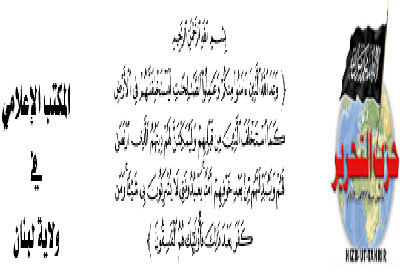 المكتب الإعلامي
في
ولاية لبنان
بِسْمِ اللهِ الرَّحْمَنِ الرَّحِيمِ
﴿ وَعَدَ اللَّهُ الَّذِينَ ءَامَنُوا مِنكُمْ وَعَمِلُوا الصَّالِحَاتِ لَيَسْتَخْلِفَنَّهُمْ فِي الْأَرْضِ
كَمَا اسْتَخْلَفَ الَّذِينَ مِن قَبْلِهِمْ وَلَيُمَكِّنَنَّ لَهُمْ دِينَهُمُ الَّذِي ارْتَضَى
لَهُمْ وَلَيُبَدِّلَنَّهُم مِّن بَعْدِ خَوْفِهِمْ أَمْنًا يَعْبُدُونَنِي لَا يُشْرِكُونَ بِي شَيْئًا وَمَن
كَفَرَ بَعْدَ ذَلِكَ فَأُولَئِكَ هُمُ الْفَاسِقُونَ ﴾
حزب التحرير
HIZB UT TAHRIR